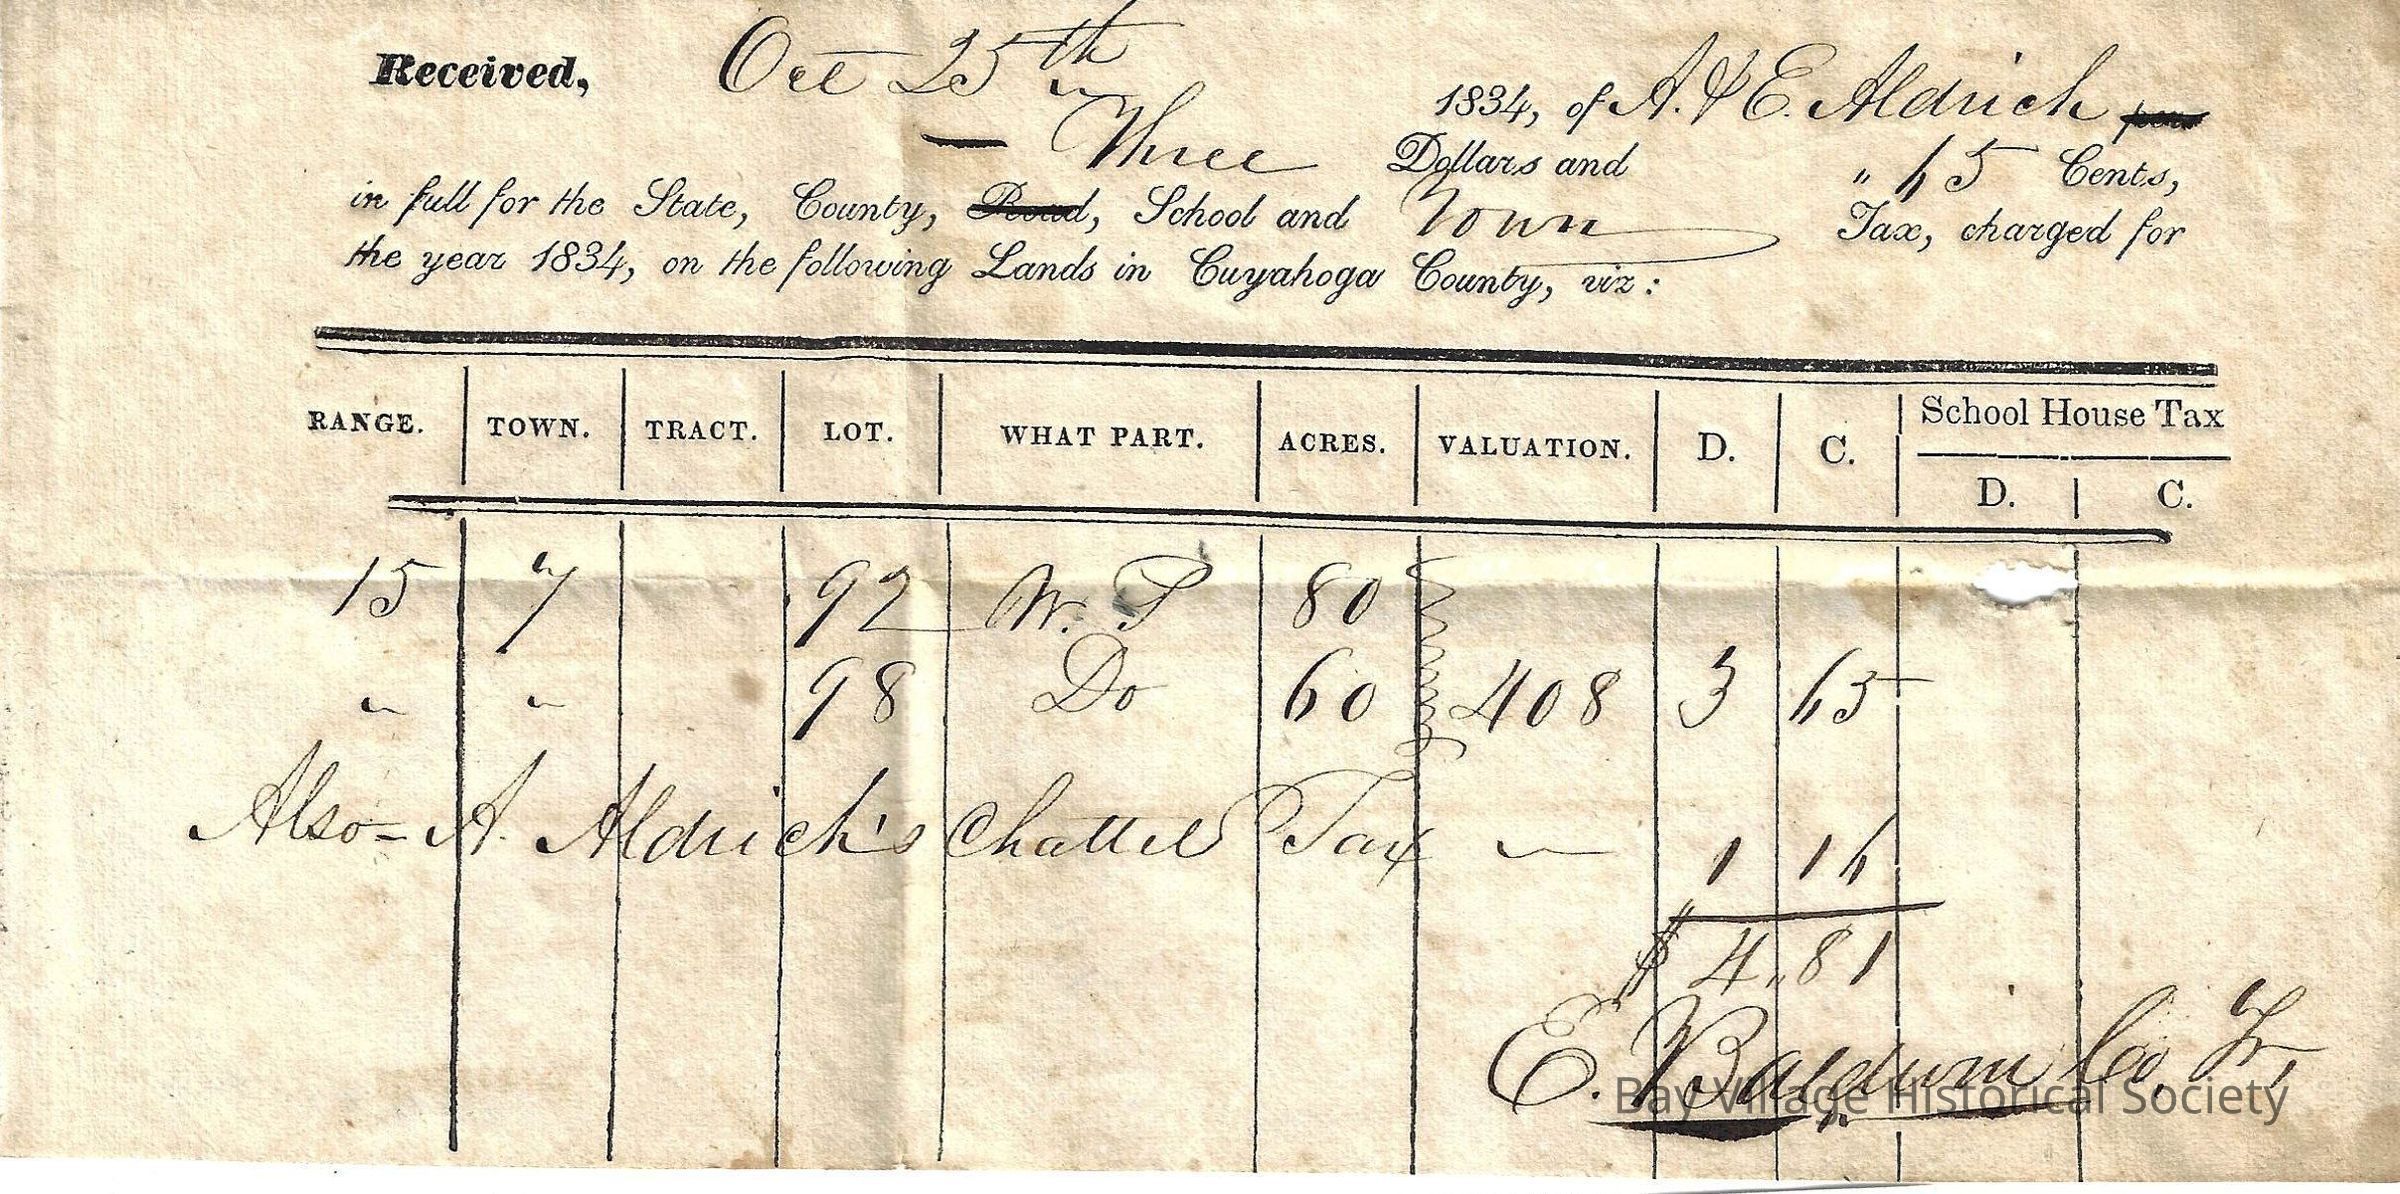 Received, Oct 25th 1834, of A. & E. Aldrich
Three Dollars and " 65 Cents,
in full for the State, County, Road, School and Town Tax, charged for
the year 1834, on the following Lands in Cuyahoga County, viz:
RANGE. TOWN. TRACT. LOT. WHAT PART. ACRES. VALUATION. D. C. School House Tax
D. C.
15 7 92 W. P 80
" " 98 Do 60 408 3 65
Also - A. Aldrich's Chattel Tax " 1 16
$ 4.81
E. Baldwin Co, Tr,
Bay Village Historical Society